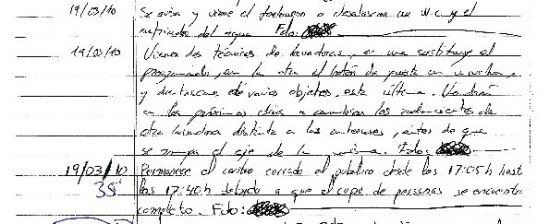 19/03/10 Se avisa y viene el fontanero a desatascar un W.C. y el
del agua. Fdo:
19/03/10 Vienen dos técnicos de lavadoras, en una sustituye el
programador, en la otra el botón de puesta en marcha
y de varios objetos, esta última. Vendrán
en los próximos días a cambiar los rodamientos de
otra lavadora distinta a las anteriores, antes de que
se rompa el eje de la misma. Fdo:
19/03/10 Permanece el centro cerrado al público desde las 17:05h hast
35' las 17:40h debido a que el cupo de personas se encuentra
completo. Fdo: